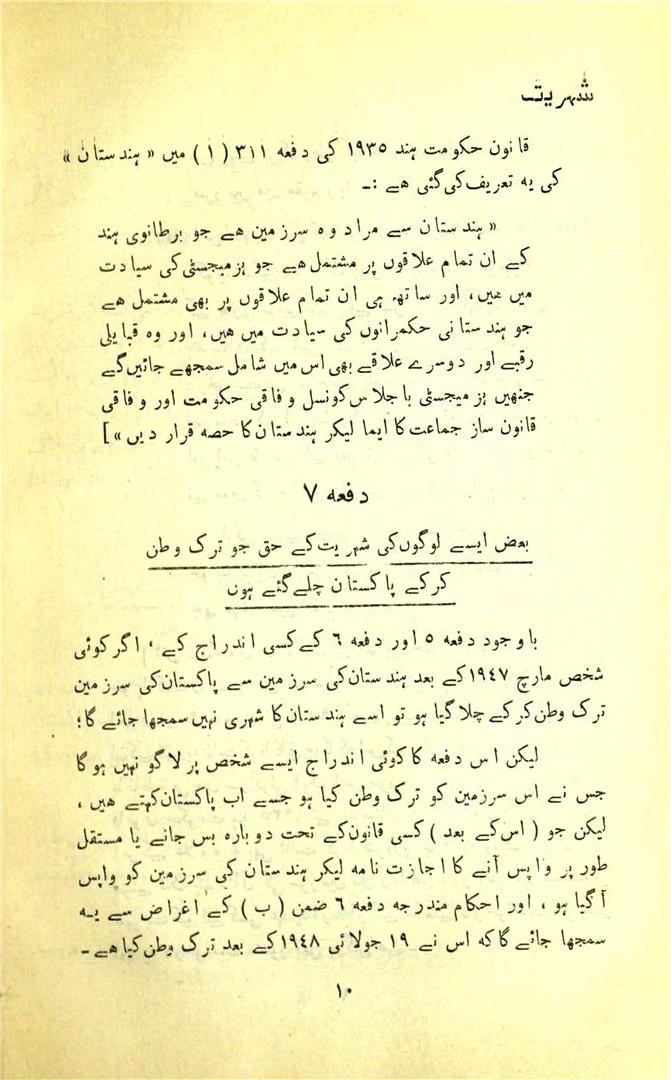 شہریت
قانون حکومت ہند ۱۹۳۵ کی دفعہ ۳۱۱ (۱) میں « ہندستان »
کی یہ تعریف کی گئی ہے :ـ
« ہندستان سے مراد وہ سرزمین ہے جو برطانوی ہند
کے ان تمام علاقوں پر مشتمل ہے جو ہزمیجسٹی کی سیادت
میں ہیں، اور ساتھ ہی ان تمام علاقوں پر بھی مشتمل ہے
جو ہندستانی حکمرانوں کی سیادت میں ہیں، اور وہ قبایلی
رقبے اور دوسرے علاقے بھی اس میں شامل سمجھے جائیں گے
جنھیں ہزمیجسٹی باجلاس کونسل وفاقی حکومت اور وفاقی
قانون ساز جماعت کا ایما لیکر ہندستان کا حصہ قرار دیں »]
دفعہ ۷
بعض ایسے لوگوں کی شہریت کے حق جو ترک وطن
کرکے پاکستان چلے گئے ہوں
باوجود دفعہ ۵ اور دفعہ ۶ کے کسی اندراج کے ، اگر کوئی
شخص مارچ ۱۹۴۷ کے بعد ہندستان کی سرزمین سے پاکستان کی سرزمین
ترک وطن کرکے چلا گیا ہو تو اسے ہندستان کا شہری نہیں سمجھا جائے گا؛
لیکن اس دفعہ کا کوئی اندراج ایسے شخص پر لاگو نہیں ہوگا
جس نے اس سرزمین کو ترک وطن کیا ہو جسے اب پاکستان کہتے ہیں ،
لیکن جو ( اس کے بعد ) کسی قانون کے تحت دوبارہ بس جانے یا مستقل
طور پر واپس آنے کا اجازت نامہ لیکر ہندستان کی سرزمین کو واپس
آگیا ہو ، اور احکام مندرجہ دفعہ ۶ ضمن ( ب ) کے اغراض سے یہ
سمجھا جائے گا کہ اس نے ۱۹ جولائی ۱۹۴۸ کے بعد ترک وطن کیا ہے ـ
۱۰